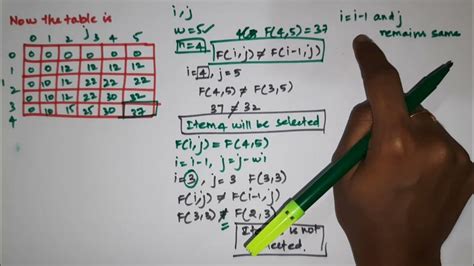 Now the table is
j
0 1 2 3 4 5
0 0 0 0 0 0 0
1 0 0 12 12 12 12
2 0 10 12 22 22 22
3 0 10 12 22 30 32
4 0 10 15 25 30 37
i, j
w=5
n=4
F(4,5)=37
F(i,j) ≠ F(i-1,j)
i=4, j=5
F(4,5) ≠ F(3,5)
37 ≠ 32
Item 4 will be selected
F(i,j) = F(4,5)
i=i-1, j=j-wi
i=3, j=3 F(3,3)
F(i,j) ≠ F(i-1,j)
F(3,3) ≠ F(2,3)
=
is not
selected.
i=i-1 and j
remains same